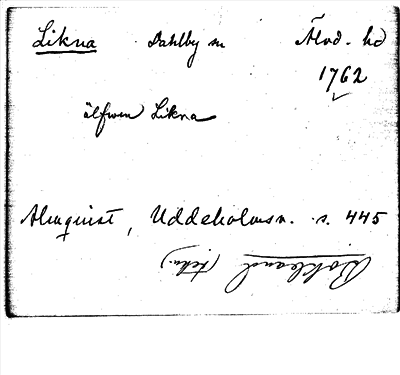 Likna Dahlby sn Älvd. hd
1762
älfwen Likna
Almquist, Uddeholmsv. s. 445
(tekn.)